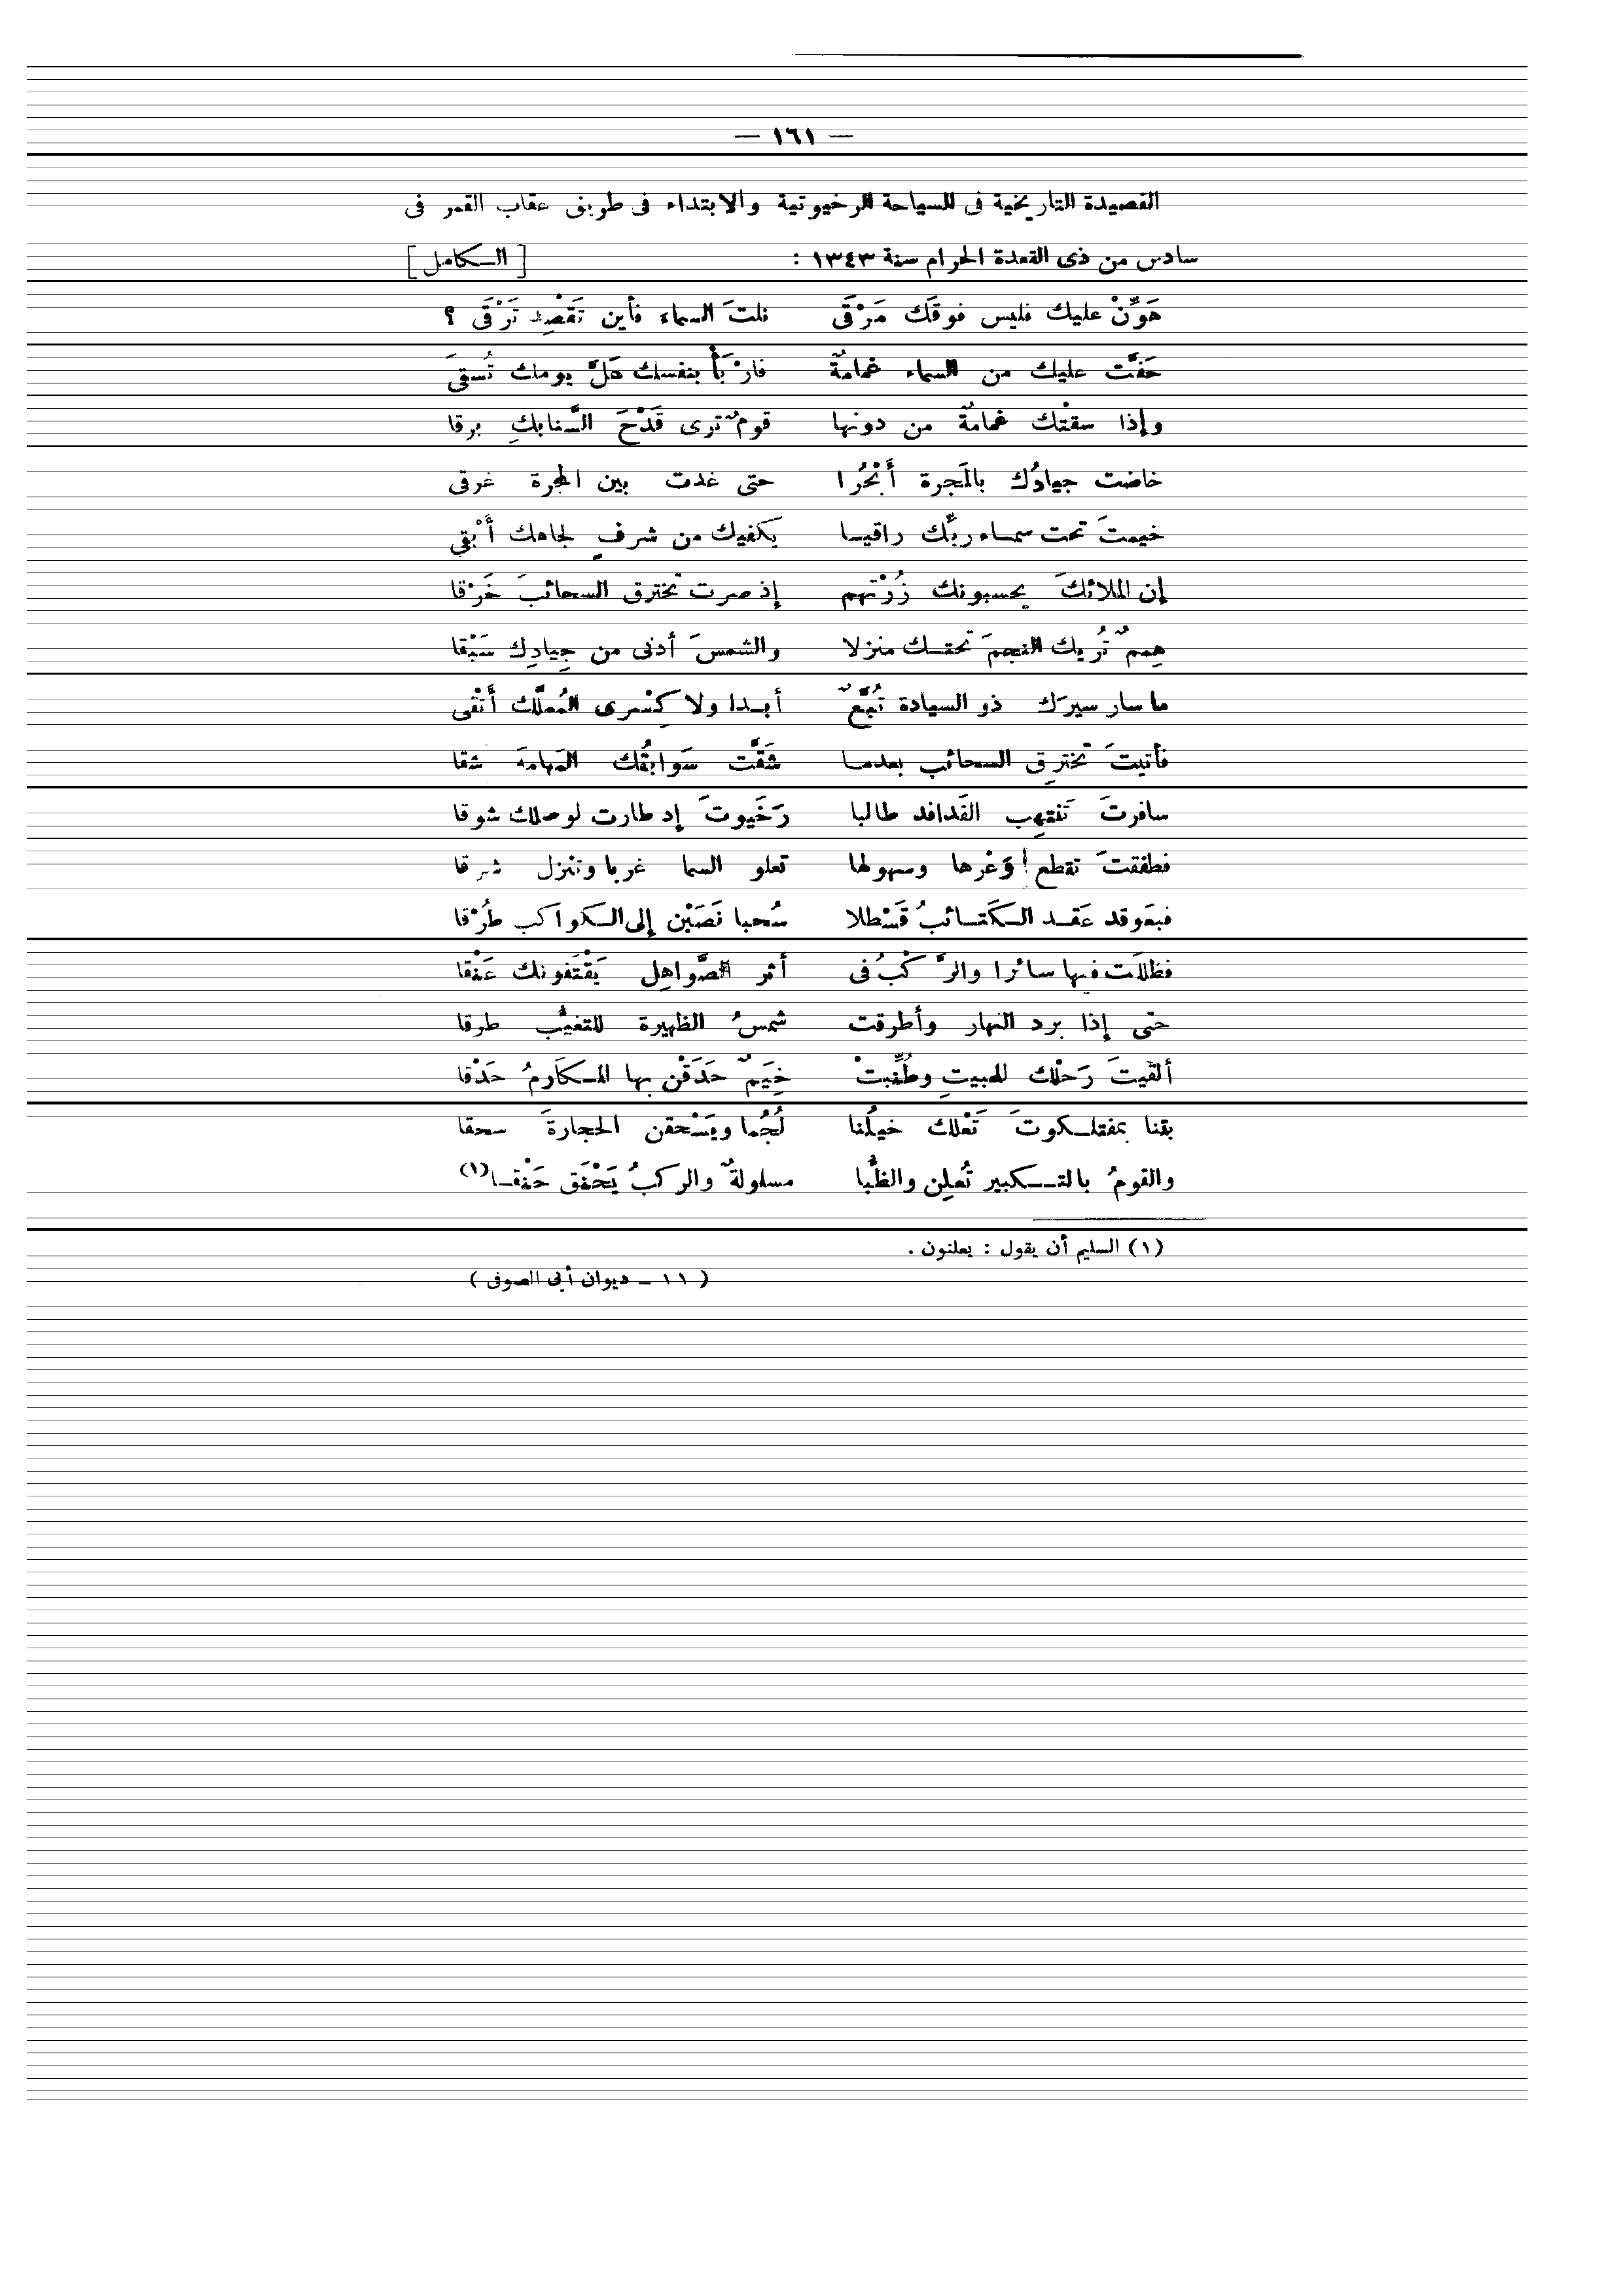 — ١٦١ —
القصيدة التاريخية فى السياحة الرخيوتية والابتداء فى طريق عقاب القمر فى
سادس من ذى القعدة الحرام سنة ١٣٤٣ : [ الـكامل ]
هَوِّنْ عليك فليس فوقَك مَرْقَى نلتَ السماء فأين تَقْصِد تَرْقَى ؟
حَفَّت عليك من السماء غمامةٌ فارْبَأْ بنفسك عَلَّ يومك تُسقىَ
وإذا سقتْك غمامةٌ من دونها قومٌ ترى قَدْحَ السَّنابكِ برقا
خاضت جيادُك بالمَجرة أَبْحُرا حتى غدت بين المجرة غرقى
خيمتَ تحت سمـاء ربِّك راقيـا يَكفيك من شرفٍ لجاهك أَبْقى
إن الملائكَ يحسبونك زُرْتهم إذ صرت تخترق السحائبَ خَرْقا
هِممٌ تُريك النجمَ تحتـك منزلا والشمسَ أدنى من جِيادِك سَبْقا
ما سار سيرَك ذو السيادة تُبَّعٌ أبـدا ولا كِسْرى المُملَّك أَتْقى
فأتيتَ تخترِق السحائب بعدمـا شَقَّت سَوابقُك المَهامهَ شقا
سافرتَ تَنتهِب الفَدافد طالبا رَخَيوتَ إد طارت لوصلك شوقا
فطفقتَ تقطع وَعْرها وسهولها تعلو السما غربا وتنزل شرقا
عَقـد الـكَتـائبُ قَسْطلا سُحبا نَصَبْن إلى الـكواكب طُرْقا
فظللَت فيها سائرا والرَّكْبُ فى أثر الصَّواهِل يَقْتَفونك عَنْقا
حتى إذا برد النهار وأطرقت شمسُ الظهيرة للتغيُّب طرقا
ألقيتَ رَحْلك للمبيتِ وطُنِّبتْ خِيَمٌ حَدَقْن بها المـكَارِمُ حَدْقا
بتنا تَعْلك خيلُنا لُجُما ويَسْحقن الحجارةَ سحقا
والقومُ بالتــكبير تُعلِن والظُّبا مسلولةٌ والركبُ يَخْفَق خَفْقـا(١)
(١) السليم أن يقول : يعلنون .
( ١١ ـ ديوان أبى الصوفى )